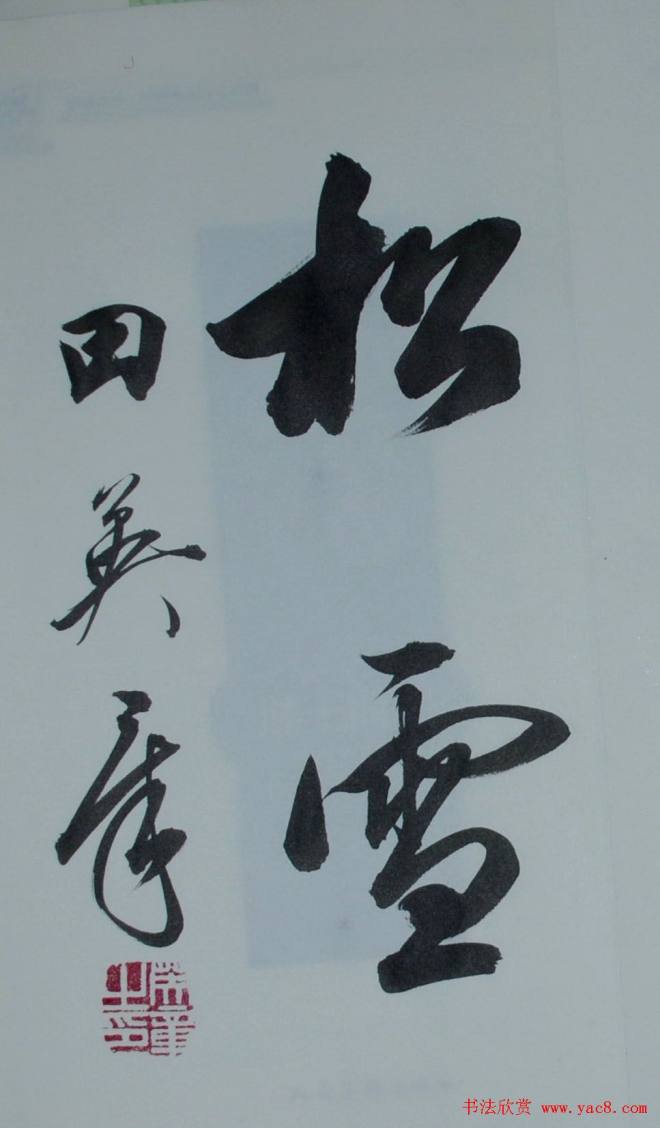 松雪
田英章
书法欣赏 www.yac8.com